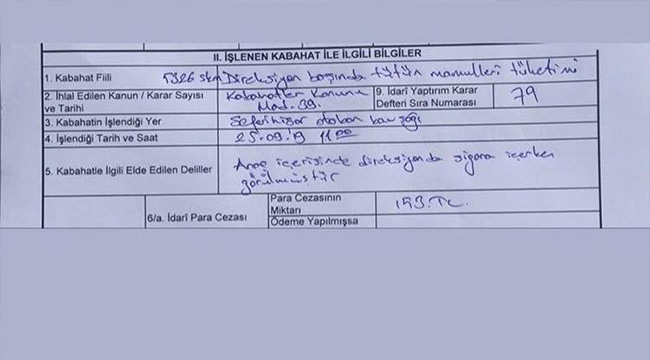 II. İŞLENEN KABAHAT İLE İLGİLİ BİLGİLER
1. Kabahat Fiili 5326 skm Direksiyon başında tütün mamulleri tüketimi
2. İhlal Edilen Kanun / Karar Sayısı ve Tarihi Kabahatler Kanunu Mad. 39. 9. İdari Yaptırım Karar Defteri Sıra Numarası 79
3. Kabahatin İşlendiği Yer Seferihisar otoban kavşağı
4. İşlendiği Tarih ve Saat 25.09.19 11:00
5. Kabahatle İlgili Elde Edilen Deliller Araç içerisinde direksiyonda sigara içerken
görülmüştür
6/a. İdari Para Cezası Para Cezasının Miktarı 153.TL.
Ödeme Yapılmışsa